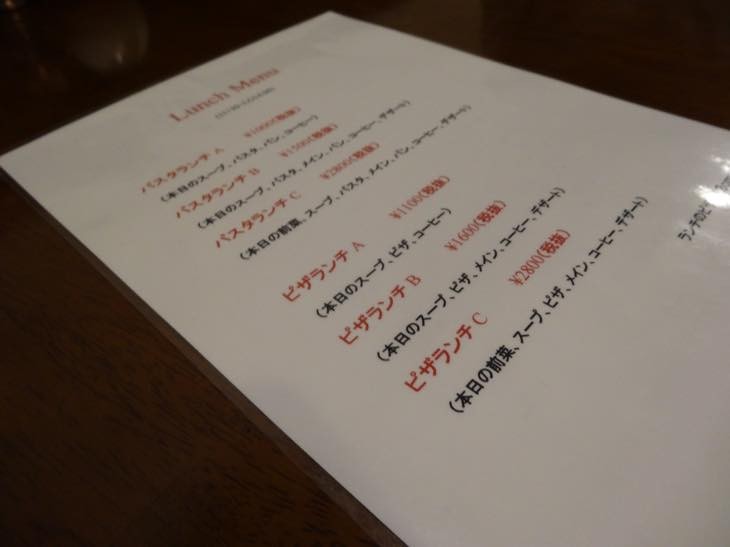 Lunch Menu
パスタランチ A ¥1000(税抜)
(本日のスープ、パスタ、パン、コーヒー)
パスタランチ B ¥1500(税抜)
(本日のスープ、パスタ、メイン、パン、コーヒー、デザート)
パスタランチ C ¥2800(税抜)
(本日の前菜、スープ、パスタ、メイン、パン、コーヒー、デザート)
ピザランチ A ¥1100(税抜)
(本日のスープ、ピザ、コーヒー)
ピザランチ B ¥1600(税抜)
(本日のスープ、ピザ、メイン、コーヒー、デザート)
ピザランチ C ¥2800(税抜)
(本日の前菜、スープ、ピザ、メイン、コーヒー、デザート)
ランチのピ